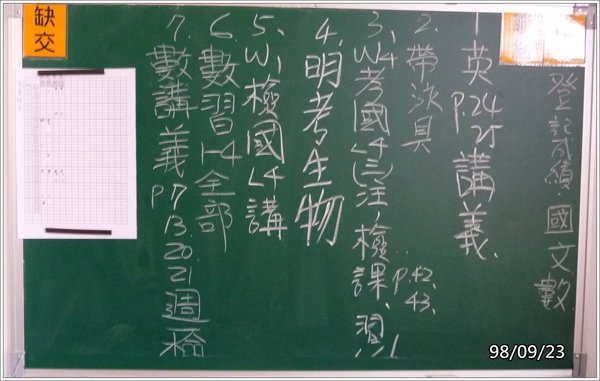 登記成績 國文 數
1. 英 P.24 25 講義.
2. 帶泳具
3、W4考國L4(三)注、檢課、習、 P.42. 43.
4. 明考生物
5、W1檢國L4講
6、數習1-4全部
7. 數講義 P7 13. 20. 21 週一檢
缺交
98/09/23